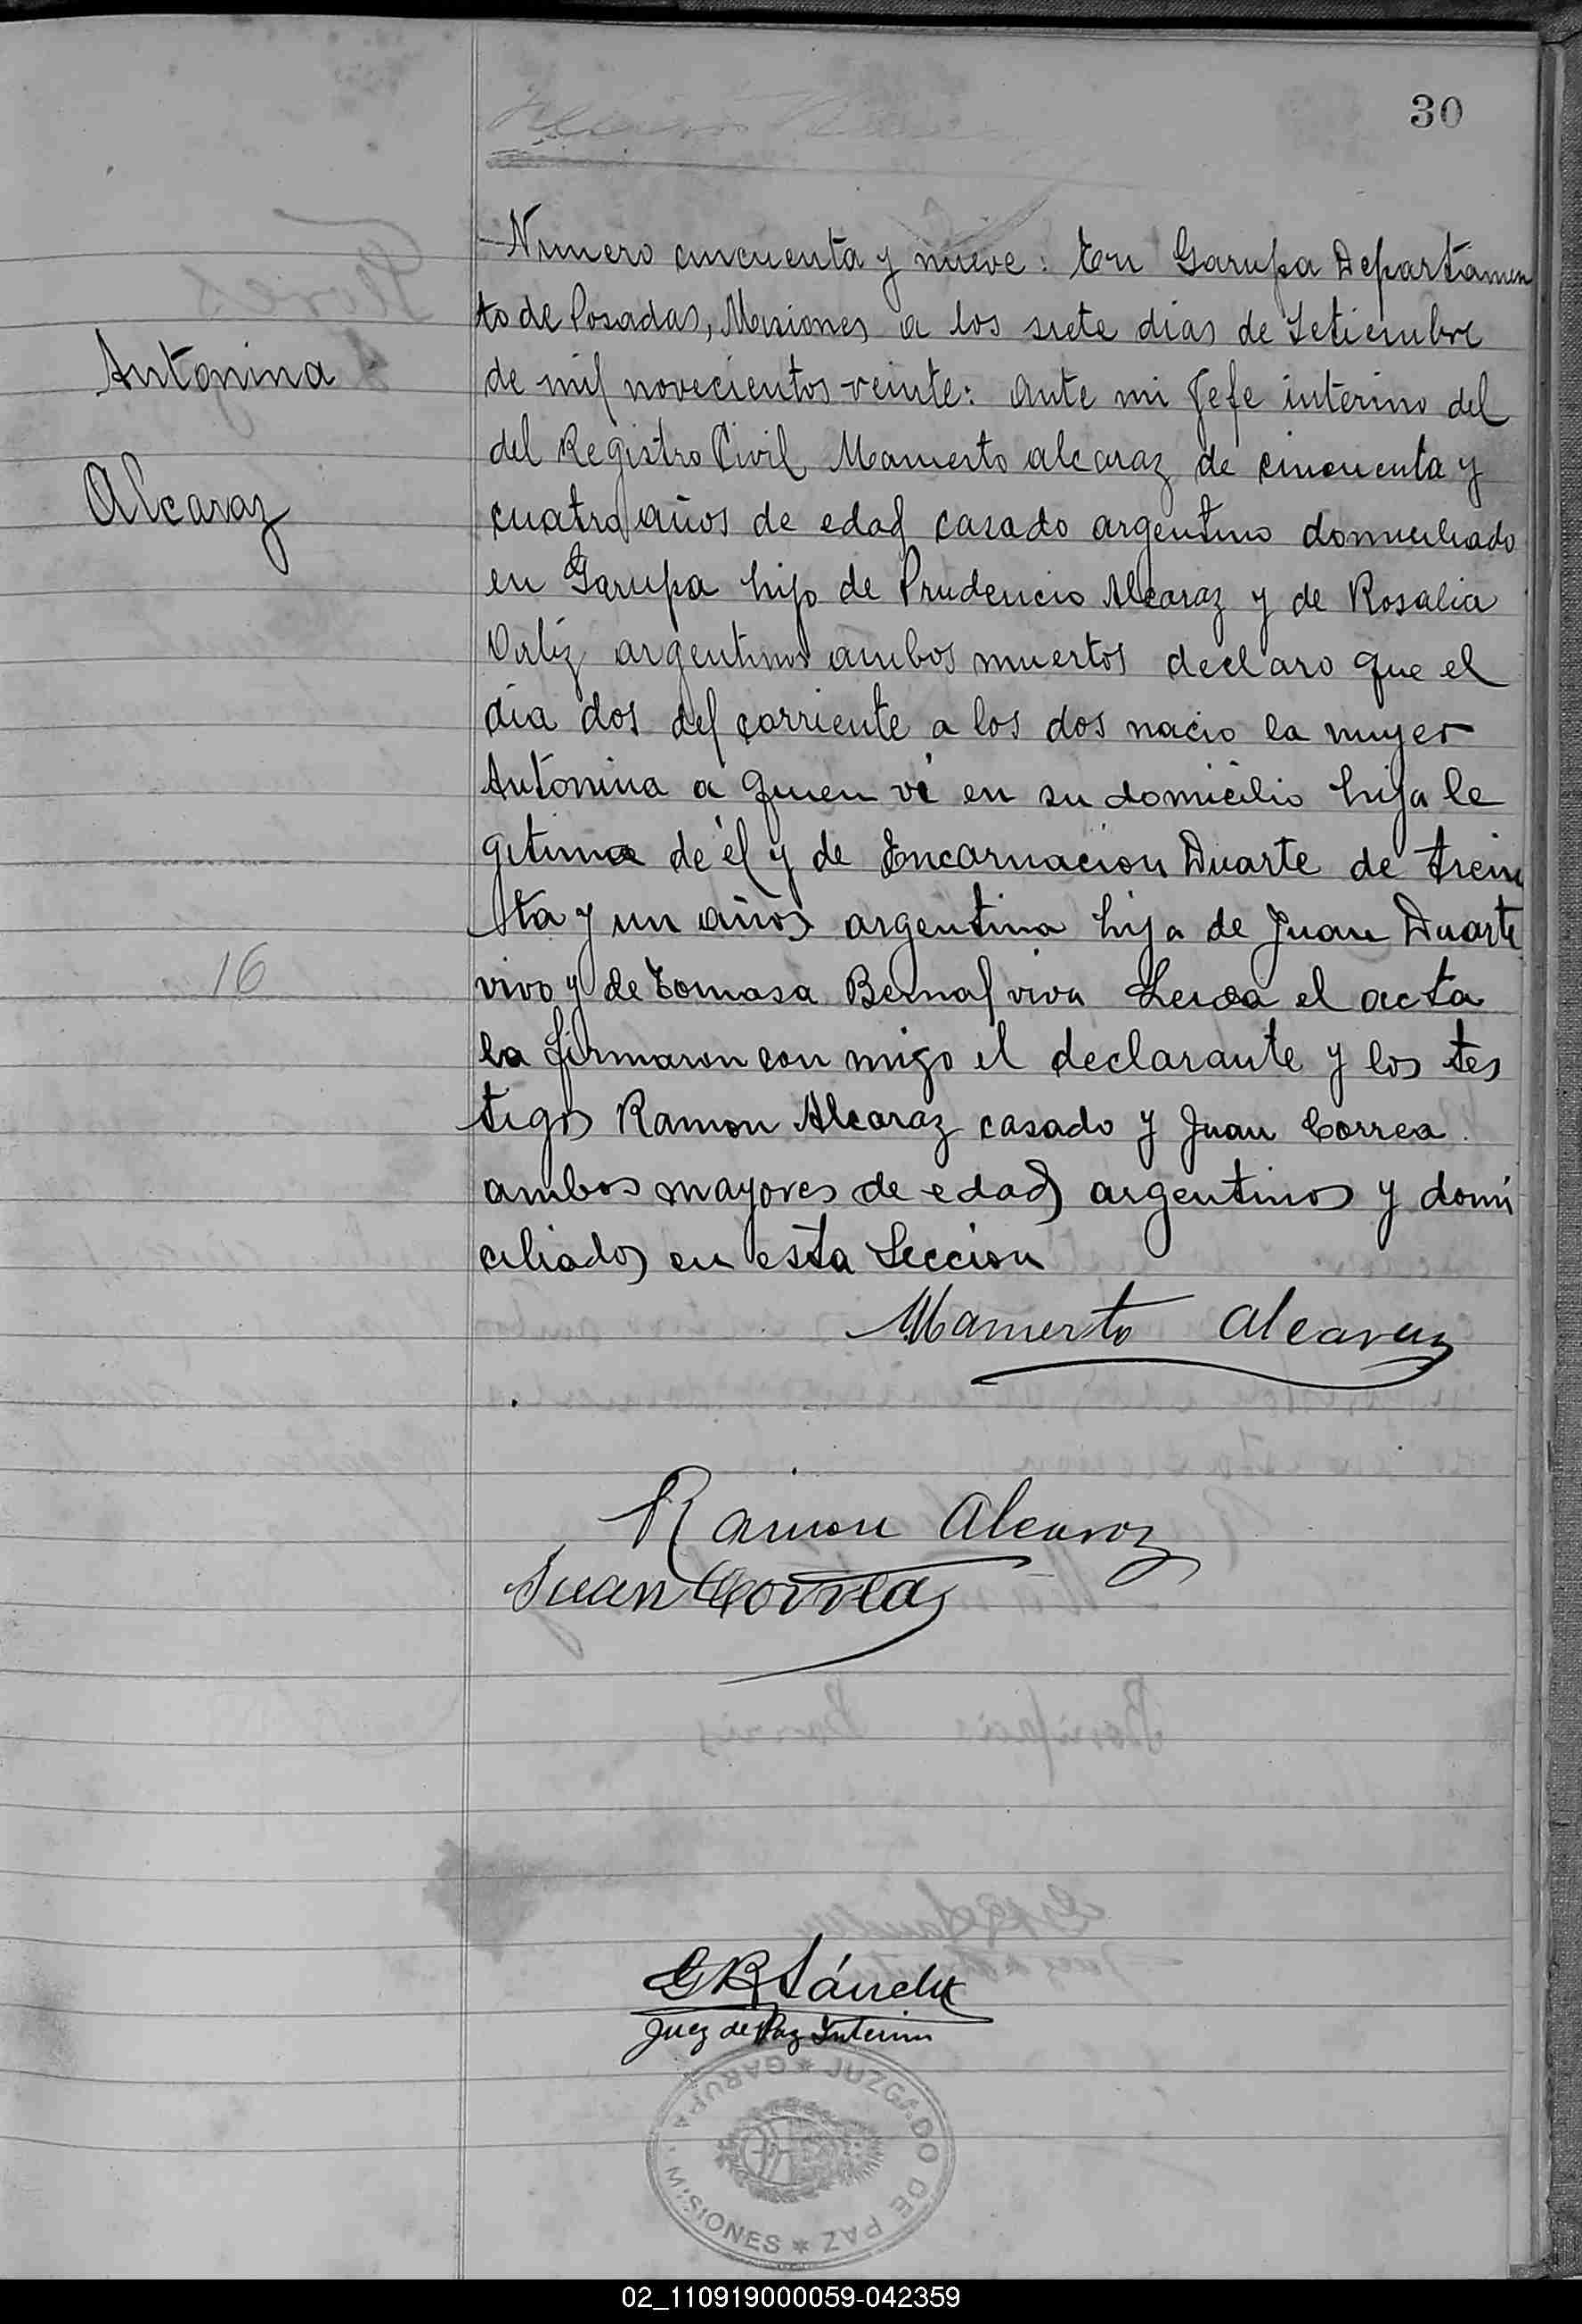 30
Antonina
Alcaraz
16
Numero cincuenta y nueve: En Garupa Departamen
to de Posadas, Misiones a los siete dias de Setiembre
de mil novecientos veinte: Ante mi Jefe interino del
del Registro Civil Mamerto Alcaraz de cincuenta y
cuatro años de edad casado argentino domiciliado
en Garupa hijo de Prudencio Alcaraz y de Rosalia
Ortiz argentinos ambos muertos declaro que el
dia dos del corriente a los dos nacio la mujer
Antonina a quien vi en su domicilio hija le
gitima de él y de Encarnacion Duarte de trein
ta y un años argentina hija de Juan Duarte
vivo y de Tomasa Bernal viva Leida el acta
la firmaron con migo el declarante y los tes
tigos Ramon Alcaraz casado y Juan Correa
ambos mayores de edad argentinos y domi
ciliados en esta Seccion
Mamerto Alcaraz
Ramon Alcaraz
Juan Correa
G R Sánchez
Juez de Paz Interino
JUZGADO DE PAZ * MISIONES · GARUPA *
02_110919000059-042359